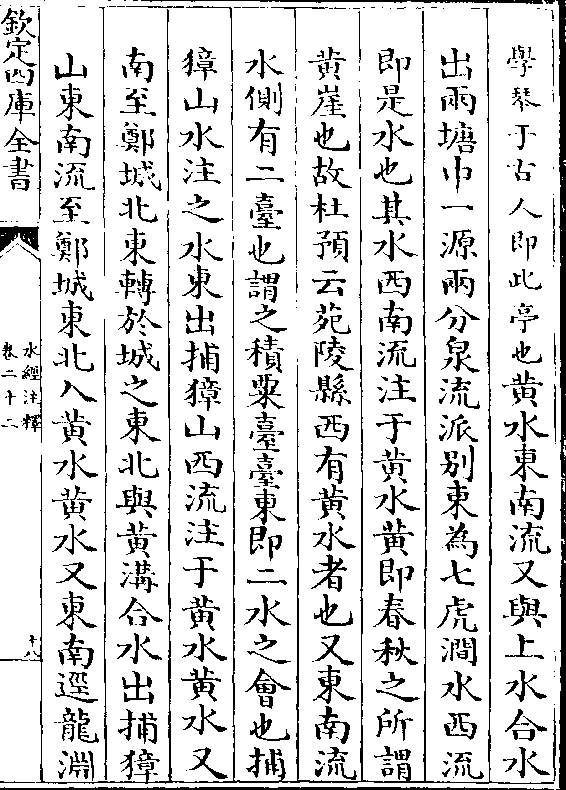 學琴于古人即此亭也黄水東南流又與上水合水
出兩塘中一源兩分泉流派别東為七虎澗水西流
即是水也其水西南流注于黄水黄即春秋之所謂
黄崖也故杜預云苑陵縣西有黄水者也又東南流
水側有二臺也謂之積粟臺臺東即二水之會也捕
獐山水注之水東出捕獐山西流注于黄水黄水又
南至鄭城北東轉於城之東北與黄溝合水出捕獐
山東南流至鄭城東北入黄水黄水又東南逕龍淵
欽定四庫全書
水經注釋
卷二十二
十八